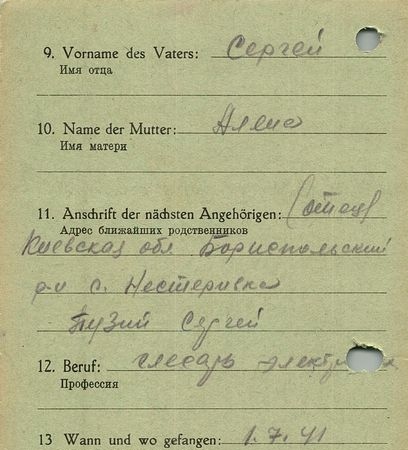 9. Vorname des Vaters: Сергей
Имя отца
10. Name der Mutter: Алена
Имя матери
11. Anschrift der nächsten Angehörigen: (отец)
Адрес ближайших родственников
Киевская обл Бориспольский
р-н с. Нестеривка
Пузий Сергей
12. Beruf: слесарь
Профессия
13 Wann und wo gefangen: 1.7.41